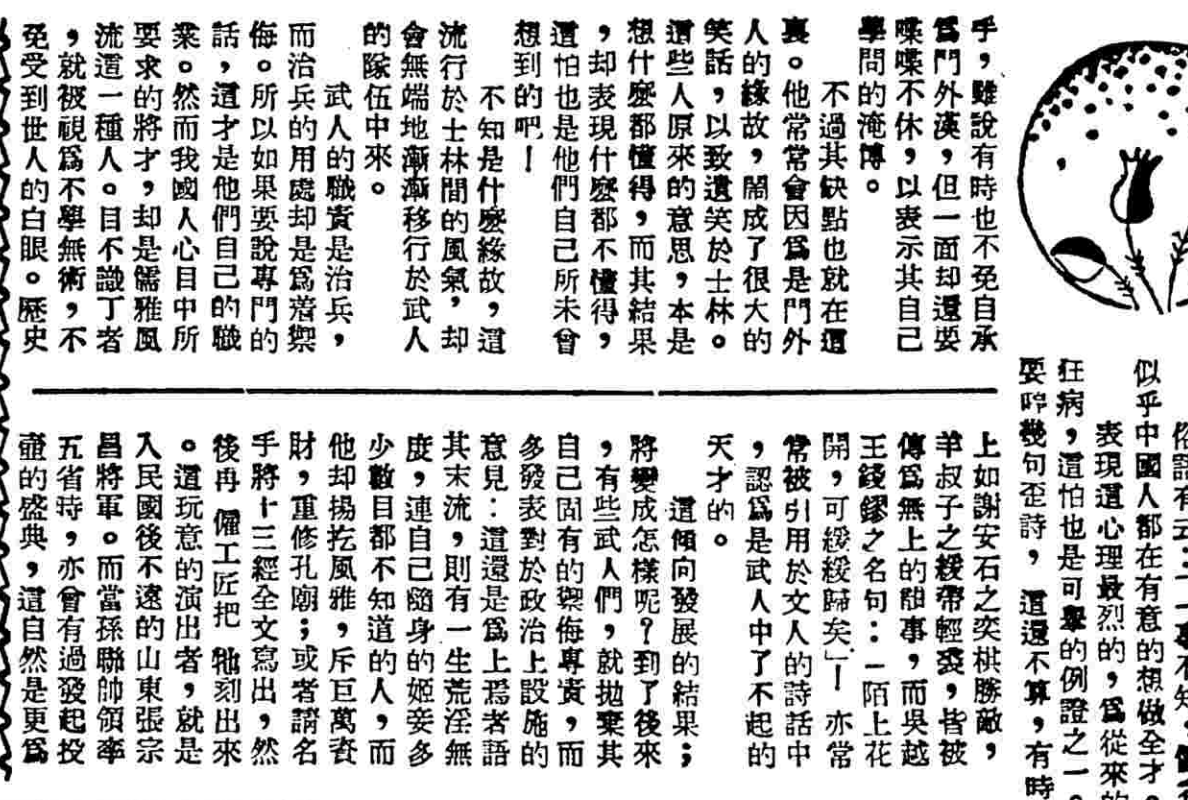 俗語有云：「一事不知，儒
似乎中國人都在有意的想做全才。
表現這心理最烈的，爲從來的
狂病，這怕也是可舉的例證之一。
要哼幾句歪詩，這還不算，有時
乎，雖說有時也不免自承
爲門外漢，但一面却還要
喋喋不休，以表示其自己
學問的淹博。
不過其缺點也就在這
裏。他常常會因爲是門外
人的緣故，鬧成了很大的
笑話，以致遺笑於士林。
這些人原來的意思，本是
想什麽都懂得，而其結果
，却表現什麽都不懂得，
這怕也是他們自己所未曾
想到的吧！
不知是什麽緣故，這
流行於士林間的風氣，却
會無端地漸漸移行於武人
的隊伍中來。
武人的職責是治兵，
而治兵的用處却是爲着禦
侮。所以如果要說專門的
話，這才是他們自己的職
業。然而我國人心目中所
要求的將才，却是儒雅風
流這一種人。目不識丁者
，就被視爲不學無術，不
免受到世人的白眼。歷史
上如謝安石之奕棋勝敵，
羊叔子之緩帶輕裘，皆被
傳爲無上的雅事，而吳越
王錢鏐之名句：「陌上花
開，可緩緩歸矣」—亦常
常被引用於文人的詩話中
，認爲是武人中了不起的
天才的。
這傾向發展的結果；
將變成怎樣呢？到了後來
，有些武人們，就拋棄其
自己固有的禦侮專責，而
多發表對於政治上設施的
意見：這還是爲上焉者語
其末流，則有一生荒淫無
度，連自己隨身的姬妾多
少數目都不知道的人，而
他却揚扢風雅，斥巨萬資
財，重修孔廟；或者請名
手將十三經全文寫出，然
後再僱工匠把牠刻出來
。這玩意的演出者，就是
入民國後不遠的山東張宗
昌將軍。而當孫聯帥領率
五省時，亦曾有過發起投
壺的盛典，這自然是更爲